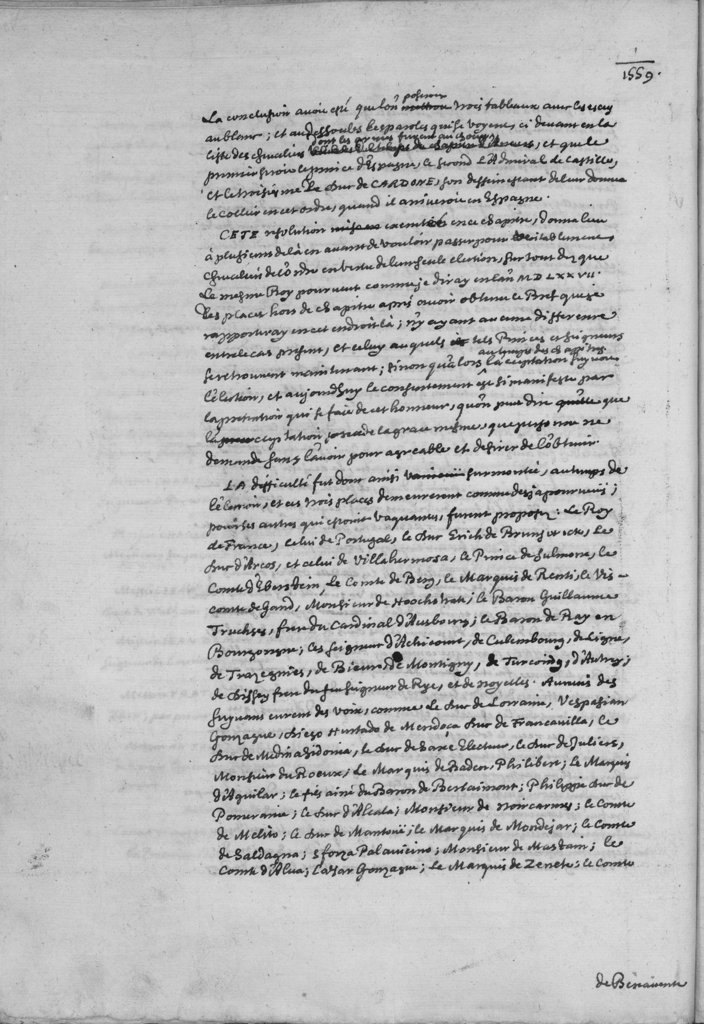 1559.
La conclusion avoit esté que l'on poseroit trois tableaux avec les escus
au blanc; et au dessoubs les paroles qui se voyent ci devant en la
liste des chevaliers dont les armes furent au choeur, et que le
premier seroit le prince d'Espagne, le second l'Admiral de Castille,
et le troisiesme le Duc de CARDONE, son dessein estant de leur donner
le collier en cet ordre, quand il arriveroit en Espagne.
CETE resolution en ce chapitre, donna lieu
à plusieurs de là en avant de vouloir passer pour veritablement
chevaliers de l'ordre en vertu de leur seule election, sur tout dez que
le mesme Roy pourveut comme je diray en l'an MDLXXVII.
les places hors de chapitre aprés avoir obtenu le Bref que je
rapporteray en cet endroit là; n'y ayant aucune difference
entre le cas present, et celuy auquel tels Princes et seigneurs
se retrouvent maintenant; sinon qu'alors au temps des chapitres l'acceptation suyvoit
l'élection, et aujourdhuy le consentement est si manifeste par
la pretention qui se fait de cet honneur, qu'on peut dire que
l'acceptation precede la grace mesme, que personne ne
demande sans l'avoir pour agreable et desirer de l'obtenir.
LA difficulté fut donc ainsi surmontée, au temps de
l'élection, et ces trois places demeurerent comme desja pourveues;
pour les autres qui estoient vaquantes, furent proposez: le Roy
de France, celui de Portugal, le Duc Erich de Brunswick, le
Duc d'Arcos, et celui de Villahermosa, le Prince de Sulmone, le
Comte d'Eberstein, le Comte de Berg, le Marquis de Renti, le Vis-
comte de Gand, Monsieur de Hoochstrate, le Baron Guillaume
Truchses, frere du Cardinal d'Ausbourg; le Baron de Ray en
Bourgongne; les seigneurs d'Achicourt, de Culembourg, de Ligne,
de Trazegnies, de Bieure, de Montigny, de Turcoing, d'Autrey;
de Dissey frere du feu seigneur de Rye, et de noyelles. Aucuns des
suyvans eurent des voix, comme le Duc de Lorraine, Vespasian
Gonzague, Diego Hurtado de Mendoça Duc de Francavilla, le
Duc de Medina Sidonia, le Duc de Saxe Electeur, le Duc de Juliers,
Monsieur du Roeux, le Marquis de Baden, Philibert; le Marquis
d'Aquilar; le fils ainé du Baron de Berlaimont; Philippe Duc de
Pomeranie; le Duc d'Alcala; Monsieur de noircarmes; le Comte
de Melito; le Duc de Mantoüe; le Marquis de Mondejar; le Comte
de Saldagna; Sforza Palavicino; Monsieur de Mastain; le
Comte d'Alva; Cæsar Gonzague; le Marquis de Zenete; le Comte
de Benavente